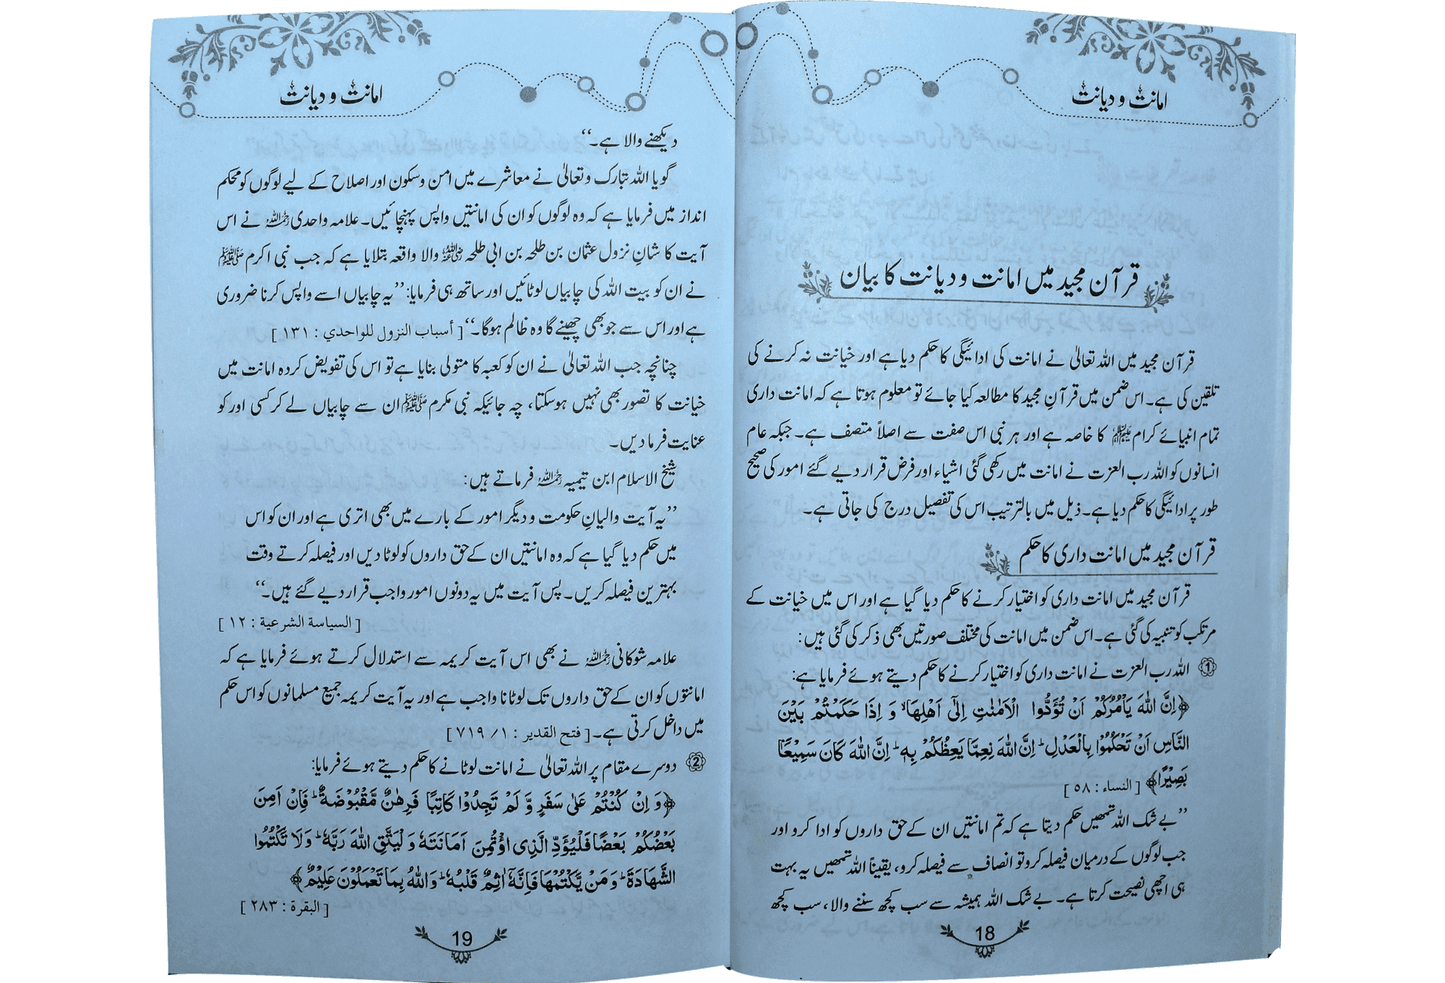 امانت و دیانت
قرآن مجید میں امانت و دیانت کا بیان
قرآن مجید میں اللہ تعالیٰ نے امانت کی ادائیگی کا حکم دیا ہے اور خیانت نہ کرنے کی
تلقین کی ہے۔ اس ضمن میں قرآن مجید کا مطالعہ کیا جائے تو معلوم ہوتا ہے کہ امانت داری
تمام انبیائے کرام ﷺ کا خاصہ ہے اور ہر نبی اس صفت سے اصلاً متصف ہے۔ جبکہ عام
انسانوں کو اللہ رب العزت نے امانت میں رکھی گئی اشیاء اور فرض قرار دیے گئے امور کی صحیح
طور پر ادائیگی کا حکم دیا ہے۔ ذیل میں بالترتیب اس کی تفصیل درج کی جاتی ہے۔
قرآن مجید میں امانت داری کا حکم
قرآن مجید میں امانت داری کو اختیار کرنے کا حکم دیا گیا ہے اور اس میں خیانت کے
مرتکب کو تنبیہ کی گئی ہے۔ اس ضمن میں امانت کی مختلف صورتیں بھی ذکر کی گئی ہیں:
① اللہ رب العزت نے امانت داری کو اختیار کرنے کا حکم دیتے ہوئے فرمایا ہے:
﴿اِنَّ اللّٰهَ یَاْمُرُكُمْ اَنْ تُؤَدُّوا الْاَمٰنٰتِ اِلٰۤی اَهْلِهَا ۙ وَ اِذَا حَكَمْتُمْ بَیْنَ
النَّاسِ اَنْ تَحْكُمُوْا بِالْعَدْلِ ؕ اِنَّ اللّٰهَ نِعِمَّا یَعِظُكُمْ بِهٖ ؕ اِنَّ اللّٰهَ كَانَ سَمِیْعًۢا
بَصِیْرًا﴾ [ النساء : ٥٨ ]
’’بے شک اللہ تمھیں حکم دیتا ہے کہ تم امانتیں ان کے حق داروں کو ادا کرو اور
جب لوگوں کے درمیان فیصلہ کرو تو انصاف سے فیصلہ کرو، یقیناً اللہ تمھیں یہ بہت
ہی اچھی نصیحت کرتا ہے۔ بے شک اللہ ہمیشہ سے سب کچھ سننے والا، سب کچھ
18
امانت و دیانت
دیکھنے والا ہے۔‘‘
گویا اللہ تبارک و تعالیٰ نے معاشرے میں امن و سکون اور اصلاح کے لیے لوگوں کو محکم
انداز میں فرمایا ہے کہ وہ لوگوں کو ان کی امانتیں واپس پہنچائیں۔ علامہ واحدی رحمہ اللہ نے اس
آیت کا شانِ نزول عثمان بن طلحہ بن ابی طلحہ رضی اللہ عنہ والا واقعہ بتلایا ہے کہ جب نبی اکرم ﷺ
نے ان کو بیت اللہ کی چابیاں لوٹائیں اور ساتھ ہی فرمایا: ’’یہ چابیاں اسے واپس کرنا ضروری
ہے اور اس سے جو بھی چھینے گا وہ ظالم ہوگا۔‘‘ [ أسباب النزول للواحدي : ١٣١ ]
چنانچہ جب اللہ تعالیٰ نے ان کو کعبہ کا متولی بنایا ہے تو اس کی تفویض کردہ امانت میں
خیانت کا تصور بھی نہیں ہوسکتا، چہ جائیکہ نبی مکرم ﷺ ان سے چابیاں لے کر کسی اور کو
عنایت فرما دیں۔
شیخ الاسلام ابن تیمیہ رحمہ اللہ فرماتے ہیں:
’’یہ آیت والیانِ حکومت و دیگر امور کے بارے میں بھی اتری ہے اور ان کو اس
میں حکم دیا گیا ہے کہ وہ امانتیں ان کے حق داروں کو لوٹا دیں اور فیصلہ کرتے وقت
بہترین فیصلہ کریں۔ پس آیت میں یہ دونوں امور واجب قرار دیے گئے ہیں۔‘‘
[ السياسة الشرعية : ١٢ ]
علامہ شوکانی رحمہ اللہ نے بھی اس آیت کریمہ سے استدلال کرتے ہوئے فرمایا ہے کہ
امانتوں کو ان کے حق داروں تک لوٹانا واجب ہے اور یہ آیت کریمہ جمیع مسلمانوں کو اس حکم
میں داخل کرتی ہے۔ [ فتح القدير : ١/ ٧١٩ ]
② دوسرے مقام پر اللہ تعالیٰ نے امانت لوٹانے کا حکم دیتے ہوئے فرمایا:
﴿وَ اِنْ كُنْتُمْ عَلٰی سَفَرٍ وَّ لَمْ تَجِدُوْا كَاتِبًا فَرِهٰنٌ مَّقْبُوْضَةٌ ؕ فَاِنْ اَمِنَ
بَعْضُكُمْ بَعْضًا فَلْیُؤَدِّ الَّذِی اؤْتُمِنَ اَمَانَتَهٗ وَ لْیَتَّقِ اللّٰهَ رَبَّهٗ ؕ وَ لَا تَكْتُمُوا
الشَّهَادَةَ ؕ وَ مَنْ یَّكْتُمْهَا فَاِنَّهٗۤ اٰثِمٌ قَلْبُهٗ ؕ وَ اللّٰهُ بِمَا تَعْمَلُوْنَ عَلِیْمٌ﴾
[ البقرة : ٢٨٣ ]
19